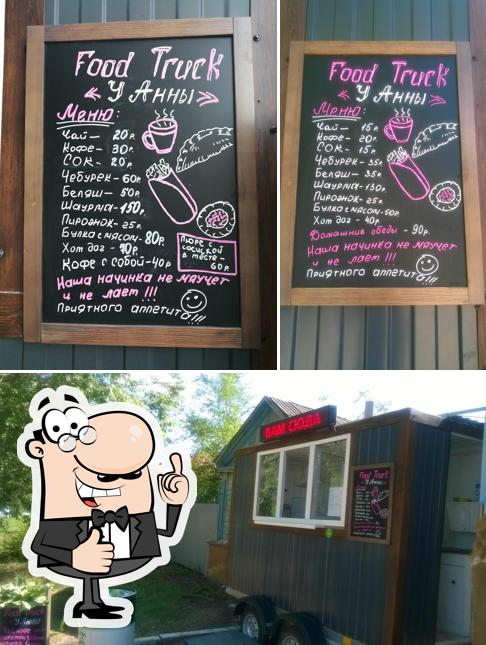 Food Truck
«У Анны»
Меню:
Чай — 20р.
Кофе — 30р.
Сок — 20р.
Чебурек — 60р.
Беляш — 50р.
Шаурма — 150р.
Пирожок — 25р.
Булка с мясом — 80р.
Хот дог — 70р.
Кофе с собой — 40р.
Пюре со
сосиской
в тесте —
60р.
Наша начинка не мяучет
и не лает!!!
Приятного аппетита!!!
Food Truck
«У Анны»
Меню:
Чай — 15р.
Кофе — 20р.
Сок — 15р.
Чебурек — 35р.
Беляш — 35р.
Шаурма — 130р.
Пирожок — 25р.
Булка с мясом — 50р.
Хот дог — 40р.
Домашние обеды — 90р.
Наша начинка не мяучет
и не лает!!!
Приятного аппетита!!!
ВАМ СЮДА
Food Truck
«У Анны»
У Анны